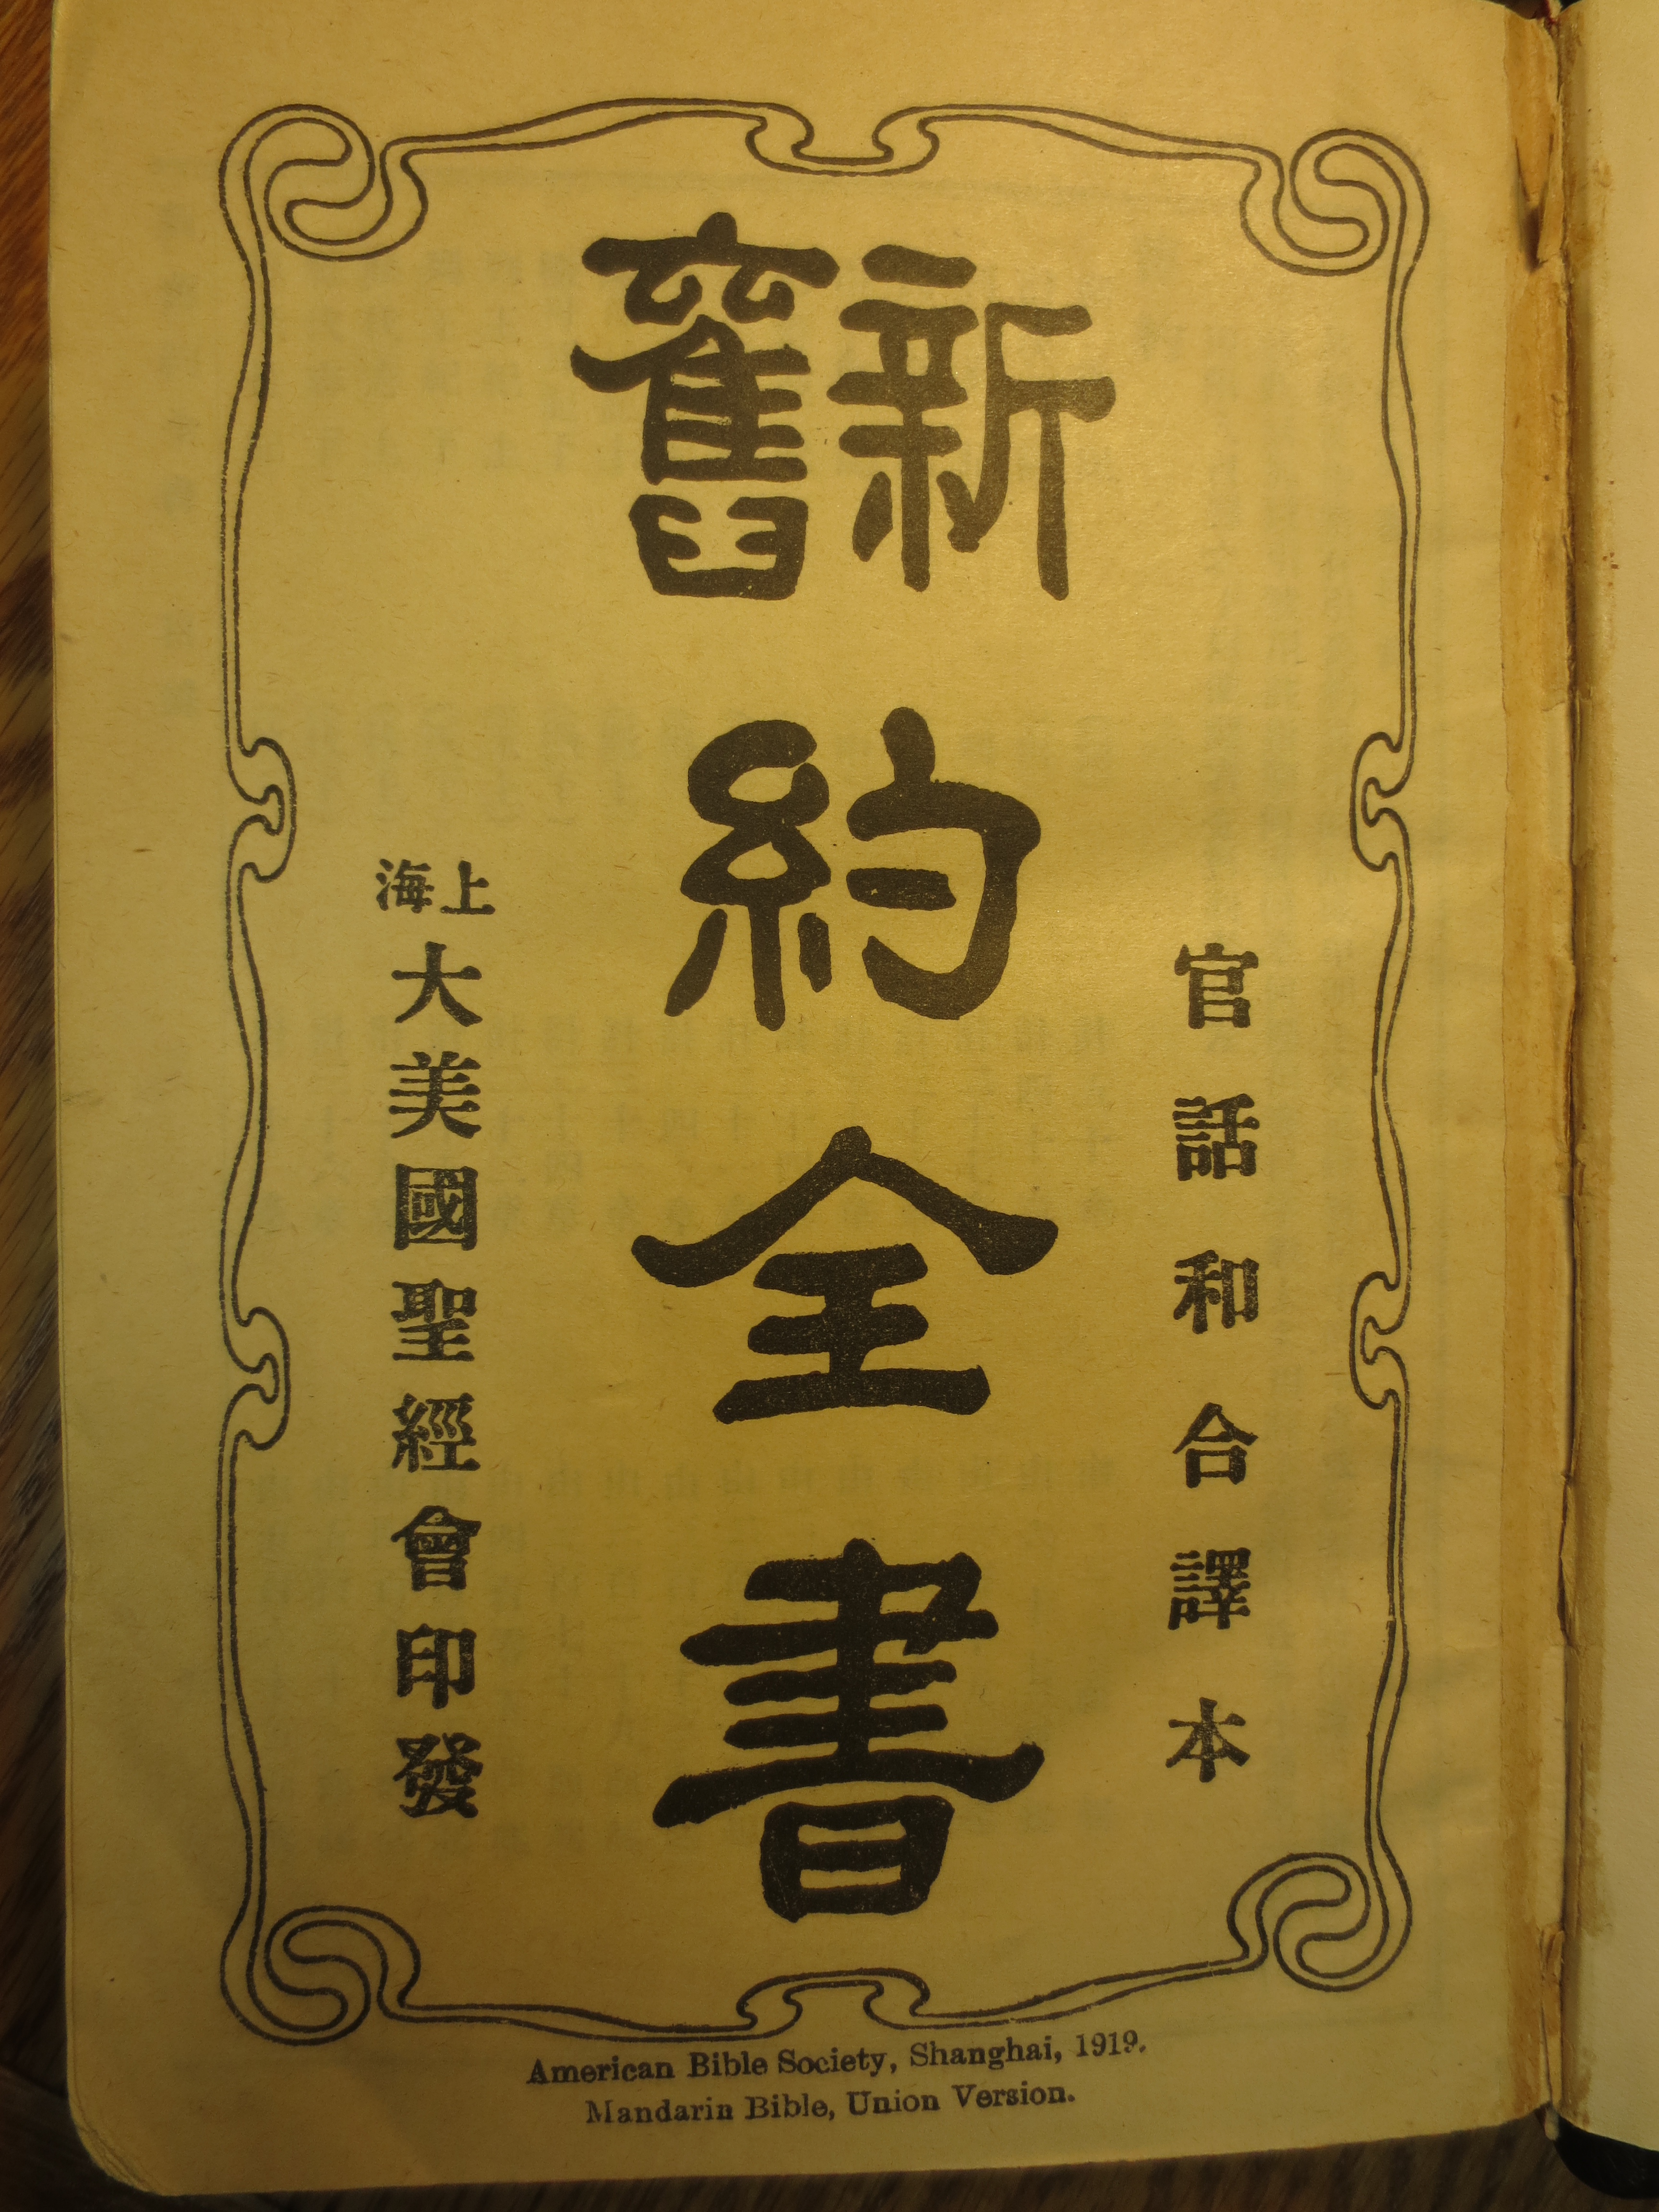 官話和合譯本
新舊約全書
上海大美國聖經會印發
American Bible Society, Shanghai, 1919.
Mandarin Bible, Union Version.